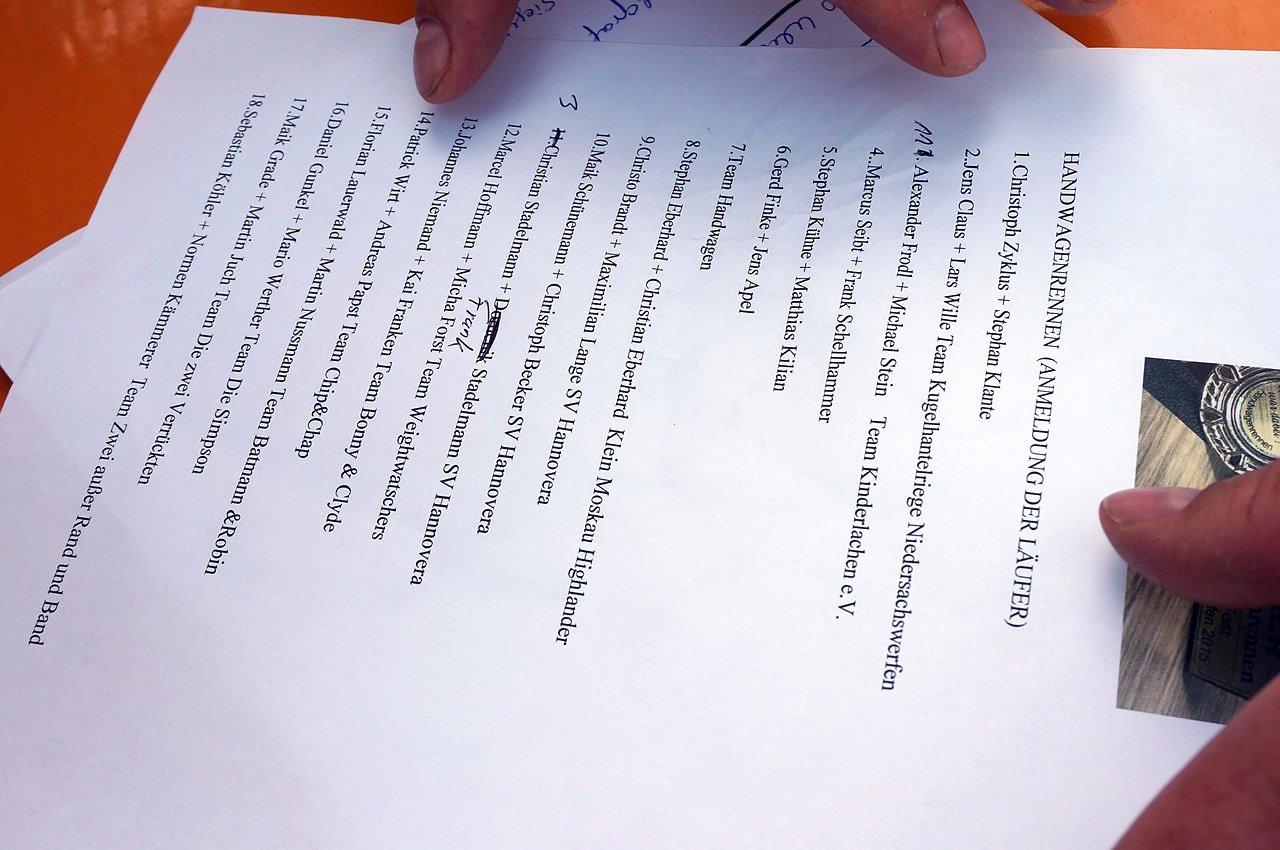 HANDWAGENRENNEN (ANMELDUNG DER LÄUFER)
1.Christoph Zyklus + Stephan Klante
2.Jens Claus + Lars Wille Team Kugelhantelriege Niedersachswerfen
11. Alexander Frodl + Michael Stein Team Kinderlachen e.V.
4.Marcus Seibt + Frank Schellhammer
5.Stephan Kühne + Matthias Kilian
6.Gerd Finke + Jens Apel
7.Team Handwagen
8.Stephan Eberhard + Christian Eberhard Klein Moskau Highlander
9.Christo Brandt + Maximilian Lange SV Hannovera
10.Maik Schünemann + Christoph Becker SV Hannovera
3 11.Christian Stadelmann + Frank Stadelmann SV Hannovera
12.Marcel Hoffmann + Micha Forst Team Weightwatschers
13.Johannes Niemand + Kai Franken Team Bonny & Clyde
14.Patrick Wirt + Andreas Papst Team Chip&Chap
15.Florian Lauerwald + Martin Nussmann Team Batmann &Robin
16.Daniel Gunkel + Mario Werther Team Die Simpson
17.Maik Grade + Martin Juch Team Die zwei Verrückten
18.Sebastian Köhler + Normen Kämmerer Team Zwei außer Rand und Band
2015